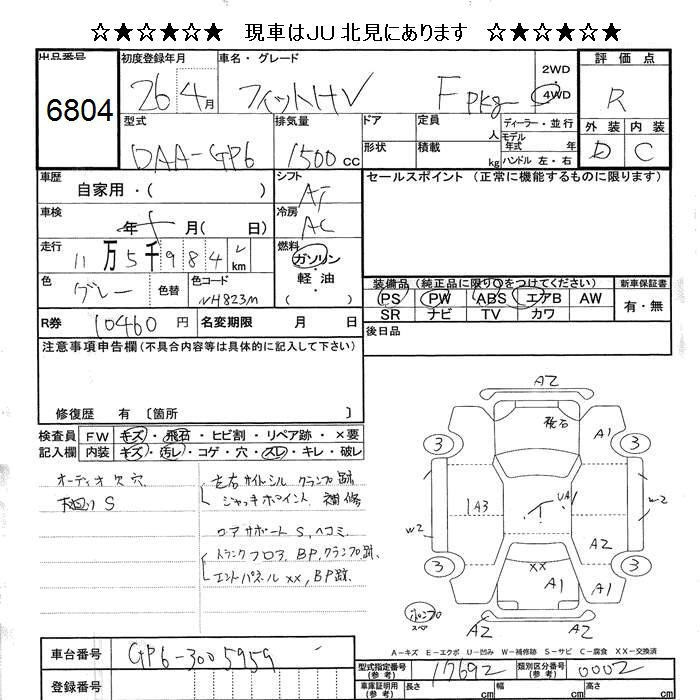 ☆★☆★☆★ 現車はJU北見にあります ☆★☆★☆★
出品番号
6804
初度登録年月
26 4月
車名・グレード
フィットHV Fpkg
2WD
4WD
評価点
R
外装 内装
D C
型式
DAA-GP6
排気量
1500cc
ドア
形状
定員
人
積載
kg
ディーラー・並行
モデル年式 年
ハンドル 左・右
車歴
自家用・( )
シフト
AT
セールスポイント (正常に機能するものに限ります)
車検
年 月( 日)
冷房
AC
走行
11万5千984km
燃料
ガソリン
軽油
( )
色
グレー
色替
色コード
NH823M
装備品(純正品に限り○をつけてください)
PS PW ABS エアB AW
SR ナビ TV カワ
新車保証書
有・無
R券 10460円
名変期限 月 日
後日品
注意事項申告欄(不具合内容等は具体的に記入して下さい)
修復歴 有〔箇所 〕
検査員 FW キズ・飛石・ヒビ割・リペア跡・×要
記入欄 内装 キズ・汚レ・コゲ・穴・スレ・キレ・破レ
オーディオ欠 穴
下廻り S
左右サイドシル クランプ跡
ジャッキポイント 補修
ロアサポートS、ヘコミ
トランクフロア、BP、クランプ跡、
エンドパネルxx、BP跡.
A2
飛石
A1
3
3
1A3
UA1
W2
W2
A2
XX
3
3
A1
A1
A2
A2
A-キズ E-エクボ U-凹ミ W-補修跡 S-サビ C-腐食 XX-交換済
車台番号 GP6-3005959
登録番号
型式指定番号(参考) 17692
類別区分番号(参考) 0002
車庫証明用(参考) 長さ cm 幅 cm 高さ cm